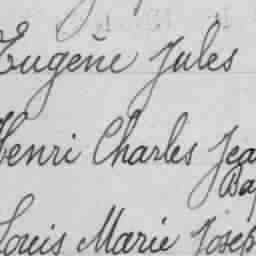 Eugène Jules
Henri Charles Jea
Bap
Louis Marie Josep